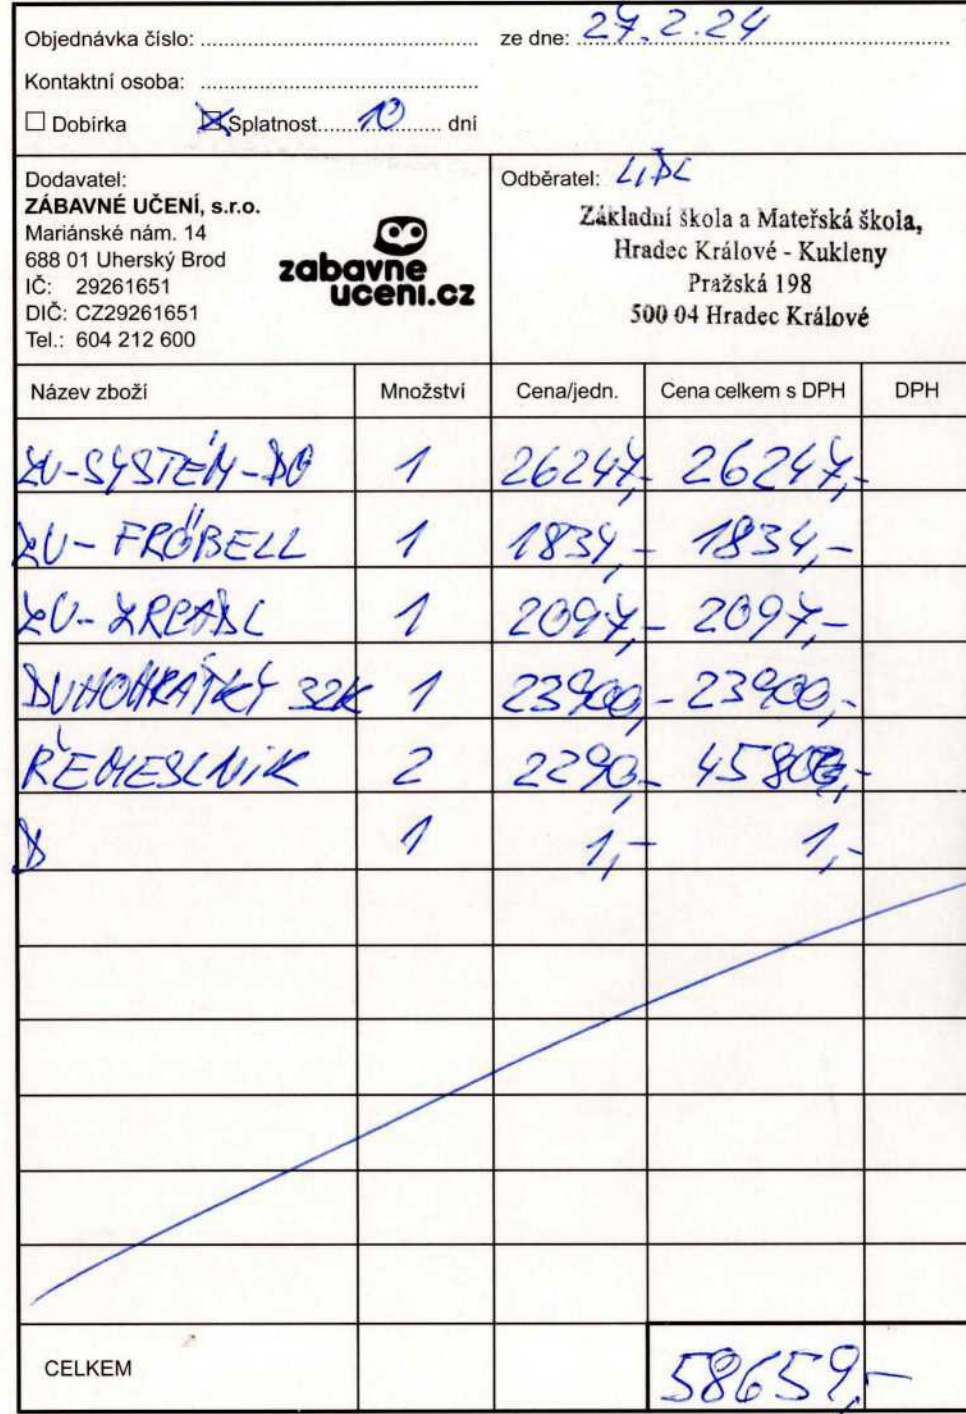 Objednávka číslo: ............ ze dne: 27.2.24
Kontaktní osoba: ............
☐ Dobírka ☒ Splatnost.....10..... dní
Dodavatel:
ZÁBAVNÉ UČENÍ, s.r.o.
Mariánské nám. 14
688 01 Uherský Brod
IČ: 29261651
DIČ: CZ29261651
Tel.: 604 212 600
zabavne
uceni.cz
Odběratel: LIDL
Základní škola a Mateřská škola,
Hradec Králové - Kukleny
Pražská 198
500 04 Hradec Králové
Název zboží Množství Cena/jedn. Cena celkem s DPH DPH
ZU-SYSTÉM-DO 1 26247,- 26247,-
ZU- FRÖBELL 1 1834,- 1834,-
ZU-ZRCADL 1 2097,- 2097,-
DUHOHRÁTKY 32K 1 23900,- 23900,-
ŘEMESLNÍK 2 2290,- 4580,-
D 1 1,- 1,-
CELKEM 58659,-